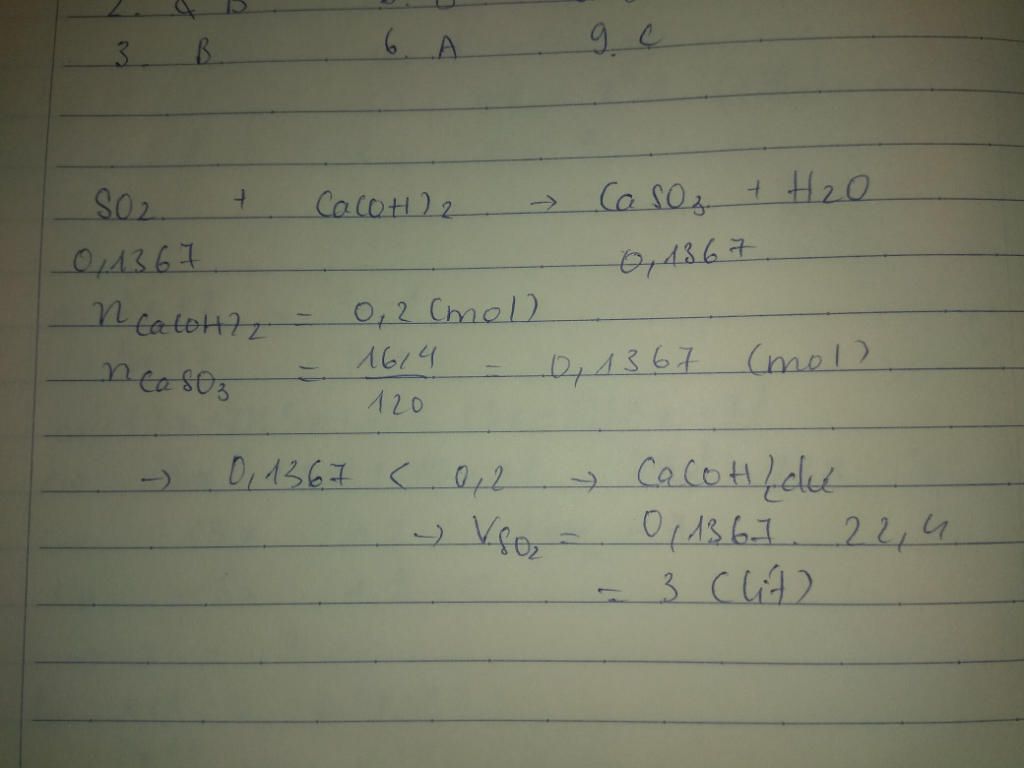 3. B. 6. A 9. C
SO2 + Ca(OH)2 → CaSO3 + H2O
0,1367 0,1367
nCa(OH)2 = 0,2 (mol)
nCaSO3 = 16,4 / 120 = 0,1367 (mol)
→ 0,1367 < 0,2 → Ca(OH)2 dư
→ VSO2 = 0,1367 . 22,4
= 3 (lít)